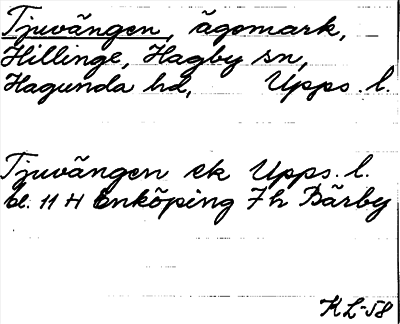 Tjuvängen, ägomark,
Hillinge, Hagby sn,
Hagunda hd, Upps. l.
Tjuvängen ek Upps. l.
bl. 11 H Enköping 7h Bärby
KL-58